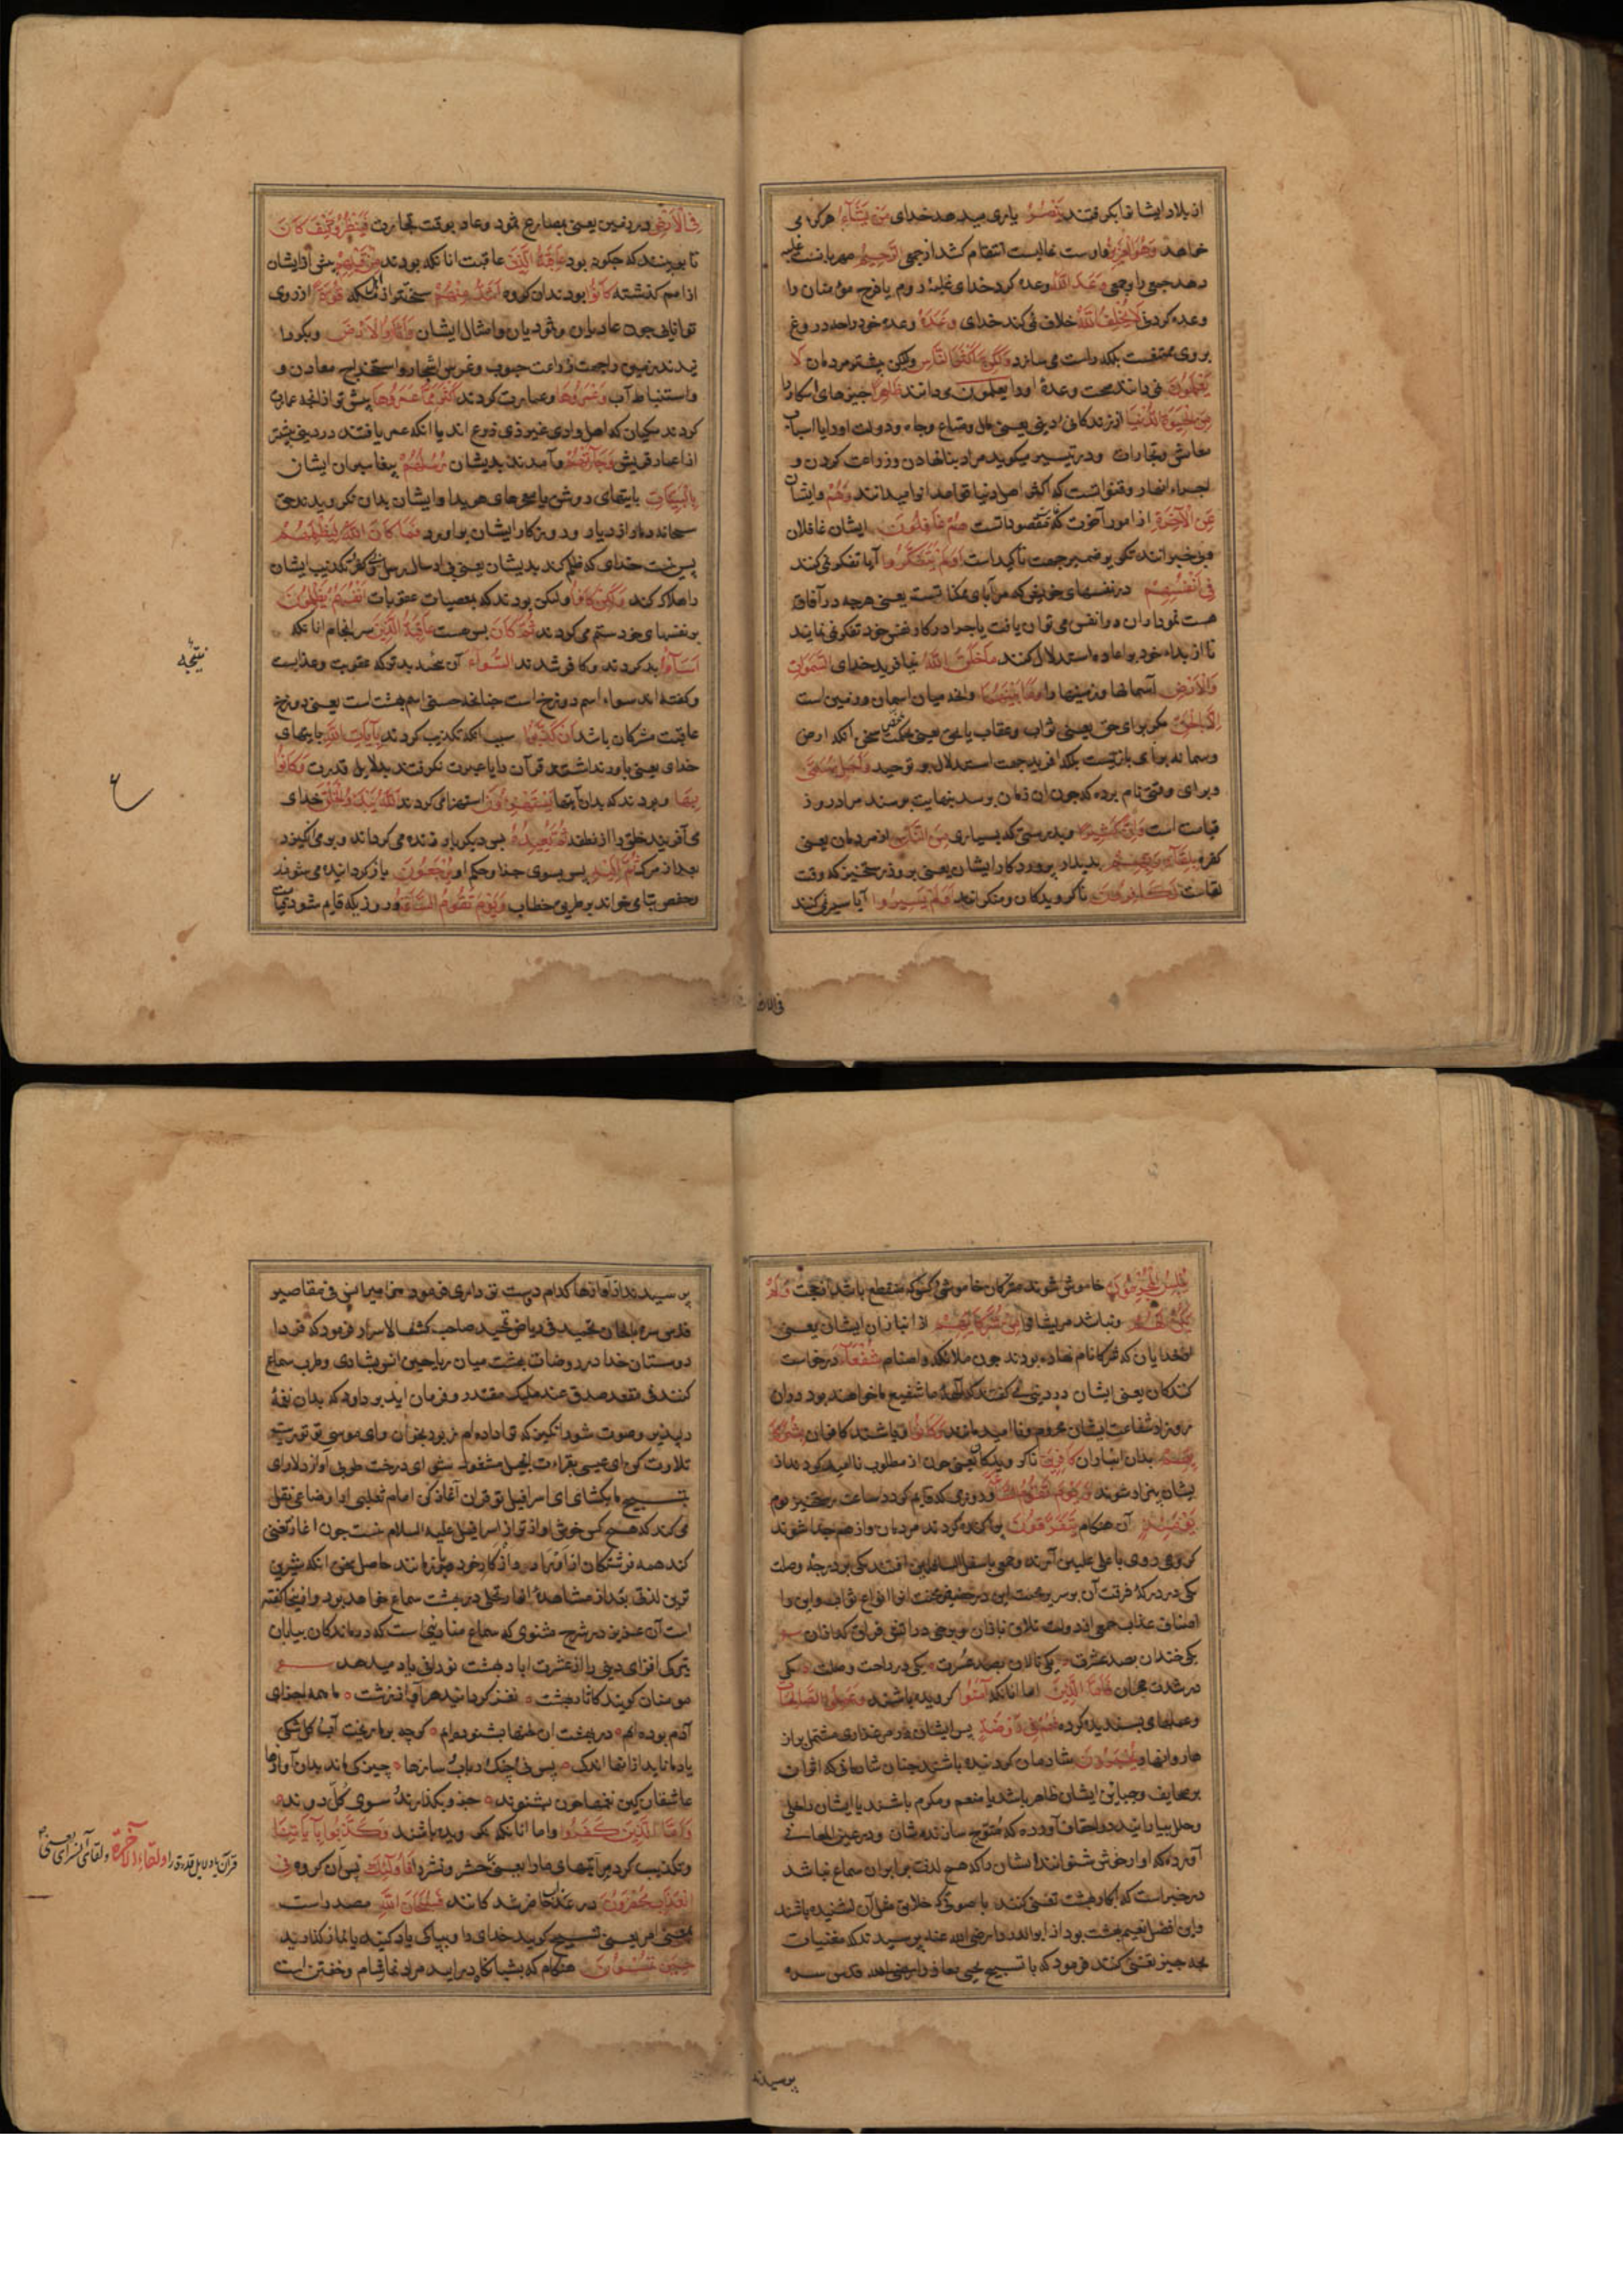 از بلاد ایشانرا بگرفتند یَنْصُرُ یاری میدهد خدای مَنْ یَشَآءُ هرکرا می
خواهد وَهُوَ الْعَزِیزُ و اوست غالبست انتقام کشد از جمعی الرَّحِیمُ مهربانست غلبه
دهد جمعی را بر جمعی وَعْدَ اللهِ وعده کرد خدای غلبهٔ روم یا فرح مؤمنان را
وعده کردنی لَا یُخْلِفُ اللهُ خلاف نمی کند خدای وَعْدَهُ وعده خود را چه دروغ
بر وی ممتنعست بلکه راست می سازد وَلٰکِنَّ أَکْثَرَ النَّاسِ ولیکن بیشتر مردمان لَا
یَعْلَمُونَ نمی دانند صحت وعدهٔ او را یعلمون می دانند ظَاهِرًا چیزهای آشکارا
مِنَ الْحَیٰوةِ الدُّنْیَا از زندکانی دنیی یعنی مال و متاع و جاه و دولت او را یا اسباب
معاش و تجارات و در تیسیر میکوید مراد بنا نهادن و زراعت کردن و
اجراء انهار و قنواتست که اکثر اهل دنیا قواعد آنرا میدانند وَهُمْ و ایشان
عَنِ الْآخِرَةِ از امور آخرت که مقصود آنست هُمْ غَافِلُونَ ایشان غافلان
و بی خبرانند تکریر ضمیر جهت تأکید است أَوَلَمْ یَتَفَکَّرُوا آیا تفکر نمی کنند
فِی أَنْفُسِهِمْ در نفسهای خود یعنی که مرآیای ممکناتست یعنی هرچه در آفاق
هست نمودار آن در انفس می توان یافت یا چرا در کار نفس خود تفکر نمی نمایند
تا از بداء خود بر اعاده استدلال کنند مَا خَلَقَ اللهُ نیافرید خدای السَّمٰوَاتِ
وَالْأَرْضَ آسمانها و زمینها را وَمَا بَیْنَهُمَا و آنچه میان آسمان و زمین است
إِلَّا بِالْحَقِّ مکر برای حق یعنی ثواب و عقاب
و سما نه برای بازیست بلکه آفرید جهت استدلال بر توحید وَأَجَلٍ مُسَمًّی
و برای وقتی نام برده که چون آن زمان برسد بنهایت برسند مراد روز
قیامت است وَإِنَّ کَثِیرًا و بدرستی که بسیاری مِنَ النَّاسِ از مردمان یعنی
کفره بِلِقَآءِ رَبِّهِمْ بدیدار پروردکار ایشان یعنی بروز رستخیز که وقت
لقاست لَکَافِرُونَ ناکرویدکان و منکرانند أَوَلَمْ یَسِیرُوا آیا سیر نمی کنند
فی الارض
فِی الْأَرْضِ در زمین یعنی بمصارع ثمود و عاد بوقت تجارت فَیَنْظُرُوا کَیْفَ کَانَ
تا ببینند که چکونه بود عَاقِبَةُ الَّذِینَ عاقبت آنانکه بودند مِنْ قَبْلِهِمْ پیش از ایشان
از امم کذشته کَانُوا بودند آن کروه أَشَدَّ مِنْهُمْ سخت تر از اهل مکه قُوَّةً از روی
توانایی چون عادیان و ثمودیان و امثال ایشان وَأَثَارُوا الْأَرْضَ و بکروا
نیدند زمین را جهت زراعت حبوب و غرس اشجار و استخراج معادن و
و استنباط آب وَعَمَرُوهَا و عمارت کردند أَکْثَرَ مِمَّا عَمَرُوهَا بیش تر از آنچه عمارت
کردند مکیان که اهل وادی غیر ذی زرع اند یا آنکه عمر یافتند در دنیی بیشتر
از اعمار قریش وَجَآءَتْهُمْ و آمدند بدیشان رُسُلُهُمْ پیغامبران ایشان
بِالْبَیِّنَاتِ بآیتهای روشن یا معجزهای هویدا و ایشان بدان نکرویدند حق
سبحانه دمار از دیار و روزکار ایشان برآورد فَمَا کَانَ اللهُ لِیَظْلِمَهُمْ
پس نیست خدای که ظلم کند بدیشان یعنی بی ارسال رسل تکذیب ایشان
را هلاک کند وَلٰکِنْ کَانُوا و لیکن بودند که بمعصیات عقوبات أَنْفُسَهُمْ یَظْلِمُونَ
بر نفسهای خود ستم می کردند ثُمَّ کَانَ پس هست عَاقِبَةُ الَّذِینَ سرانجام آنانکه
أَسَآؤُا بد کردند و کافر شدند السُّوآٰی آن عقوبت و عذابست
و کفته اند سواء اسم دوزخ است چنانچه حسنی اسم بهشت است یعنی دوزخ
عاقبت مشرکان باشد أَنْ کَذَّبُوا سبب آنکه تکذیب کردند بِآیَاتِ اللهِ بآیتهای
خدای یعنی باور نداشتند قرآن را یا عبرت نکرفتند بدلایل قدرت وَکَانُوا
بِهَا و بودند که بدان آیتها یَسْتَهْزِؤُنَ استهزا می کردند اللهُ یَبْدَؤُ الْخَلْقَ خدای
می آفریند خلق را از نطفه ثُمَّ یُعِیدُهُ پس دیکر بار زنده می کرداند و برمی انکیزد
بعد از مرک ثُمَّ إِلَیْهِ پس بسوی جزا و حکم او یُرْجَعُونَ باز کردانیده می شوند
و حفص بتا می خواند بر طریق خطاب وَیَوْمَ تَقُومُ السَّاعَةُ و روزیکه قایم شود قیامت
نتیجه
یُبْلِسُ الْمُجْرِمُونَ خاموش شوند مشرکان خاموشی کسی که منقطع باشد از حجت وَلَمْ
یَکُنْ لَهُمْ و نباشد مریشانرا مِنْ شُرَکَآئِهِمْ از انبازان ایشان یعنی
آن خدایان که شرکا نام نهاده بودند چون ملائکه و اصنام شُفَعَآءُ درخواست
کنندکان یعنی ایشان در دنیی می کفتند که آلهه ما شفیع ما خواهند بود در آن
روز از شفاعت ایشان محروم و ناامید مانند وَکَانُوا و باشند کافران بِشُرَکَا
ئِهِمْ بدان انبازان کَافِرِینَ ناکرویدکان یعنی چون از مطلوب ناامید کردند از
یشان بیزار شوند وَیَوْمَ تَقُومُ السَّاعَةُ و روزی که قایم کردد ساعت رستخیز
یَوْمَئِذٍ آن هنکام یَتَفَرَّقُونَ پراکنده کردند مردمان و از هم جدا شوند
کروهی روی باعلی علیین آرند و جمعی باسفل السافلین افتند یکی بر درجهٔ وصلت
یکی در درکهٔ فرقت آن بر سریر محبت این در حضیض محنت آنرا انواع ثواب و این را
اصناف عذاب جمعی از دولت تلاقی نازان و برخی در آتش فراق کدازان
یکی خندان بصد عشرت یکی نالان بصد عسرت یکی در راحت وصلت یکی
در شدت هجران فَأَمَّا الَّذِینَ اما آنانکه آمَنُوا کرویده باشند وَعَمِلُوا الصَّالِحَاتِ
و عملهای پسندیده کرده فَهُمْ فِی رَوْضَةٍ پس ایشان در مرغزاری مشتمل بر از
هار و انهار یُحْبَرُونَ شادمان کردانیده باشند چنان شادمانی که اثر آن
بر صحایف وجنات ایشان ظاهر باشد یا منعم و مکرم باشند یا ایشان را بحلی
و حلل بیارایند در احقاف آورده که متوج سازندشان و در عین المعانی
آورده که آواز خوش شنوانند ایشان را که هیچ لذت برابر آن سماع نباشد
در خبر است که ابکار بهشت تغنی کنند باصواتی که خلایق مثل آن نشنیده باشند
و این افضل نعیم بهشت بود از ابوالدردا رضی الله عنه پرسیدند که مغنیات
بچه چیز تغنی کنند فرمود که با تسبیح یحیی معاذ رازی رضی الله قدس سره
پرسیدند
پرسیدند از آوازها کدام دوست تر داری فرمود مزامیر انس فی مقاصیر
قدس بالحان تحمید فی ریاض تمجید صاحب کشف الاسرار فرمود که فردا
دوستان خدا در روضات بهشت میان ریاحین انس بشادی و طرب سماع
کنند فی مقعد صدق عند ملیک مقتدر و فرمان آید بداود که بدان نغمهٔ
دلپذیر و صوت شورانکیز که ترا داده ام زبور بخوان و ای موسی تو توریة
تلاوت کن ای عیسی بقراءت انجیل مشغول شو ای درخت طوبی آواز دلارای
بتسبیح ما بکشای ای اسرافیل تو قرآن آغاز کن امام ثعلبی از اوزاعی نقل
می کند که هیچ کس خوش آواز تر از اسرافیل علیه السلام نیست چون آغاز تغنی
کند همه فرشتکان از اوراد و اذکار خود باز مانند حاصل سخن آنکه شیرین
ترین لذتی بعد از مشاهدهٔ انوار تجلی در بهشت سماع خواهد بود و از اینجا کفته
است آن عزیز در شرح مثنوی که سماع منادیی است که درماندکان بیابان
افزای دنیی را از عشرت آباد بهشت نورانی یاد میدهد
مومنان کویند کآثار بهشت نغز کردانید هر آواز زشت ما همه اجزای
آدم بوده ایم در بهشت آن لحنها بشنوده ایم کرچه بر ما ریخت آب و کل شکی
یادمان آید از آنها اندکی پس نی و چنک و رباب و سازها چیزکی ماند بدان آوازها
عاشقان کین نغمها را بشنوند جزو بکذارند و سوی کل روند
وَأَمَّا الَّذِینَ کَفَرُوا و اما آنانکه نکرویده باشند وَکَذَّبُوا بِآیَاتِنَا
و تکذیب کردند مر آیتهای ما را یعنی حشر و نشر را فَأُولٰئِکَ پس آن کروه فِی
الْعَذَابِ مُحْضَرُونَ در عذاب حاضر شدکانند فَسُبْحَانَ اللهِ مصدر است
بمعنی امر یعنی تسبیح کویید خدای را و بپاکی یاد کنید یا نماز کذارید
حِینَ تُمْسُونَ هنکام که بشبانکاه درآیید مراد نماز شام و خفتن است
قرآن یا دلایل قدرت را وَلِقَآءِ الْآخِرَةِ و لقای آن سرای یعنی